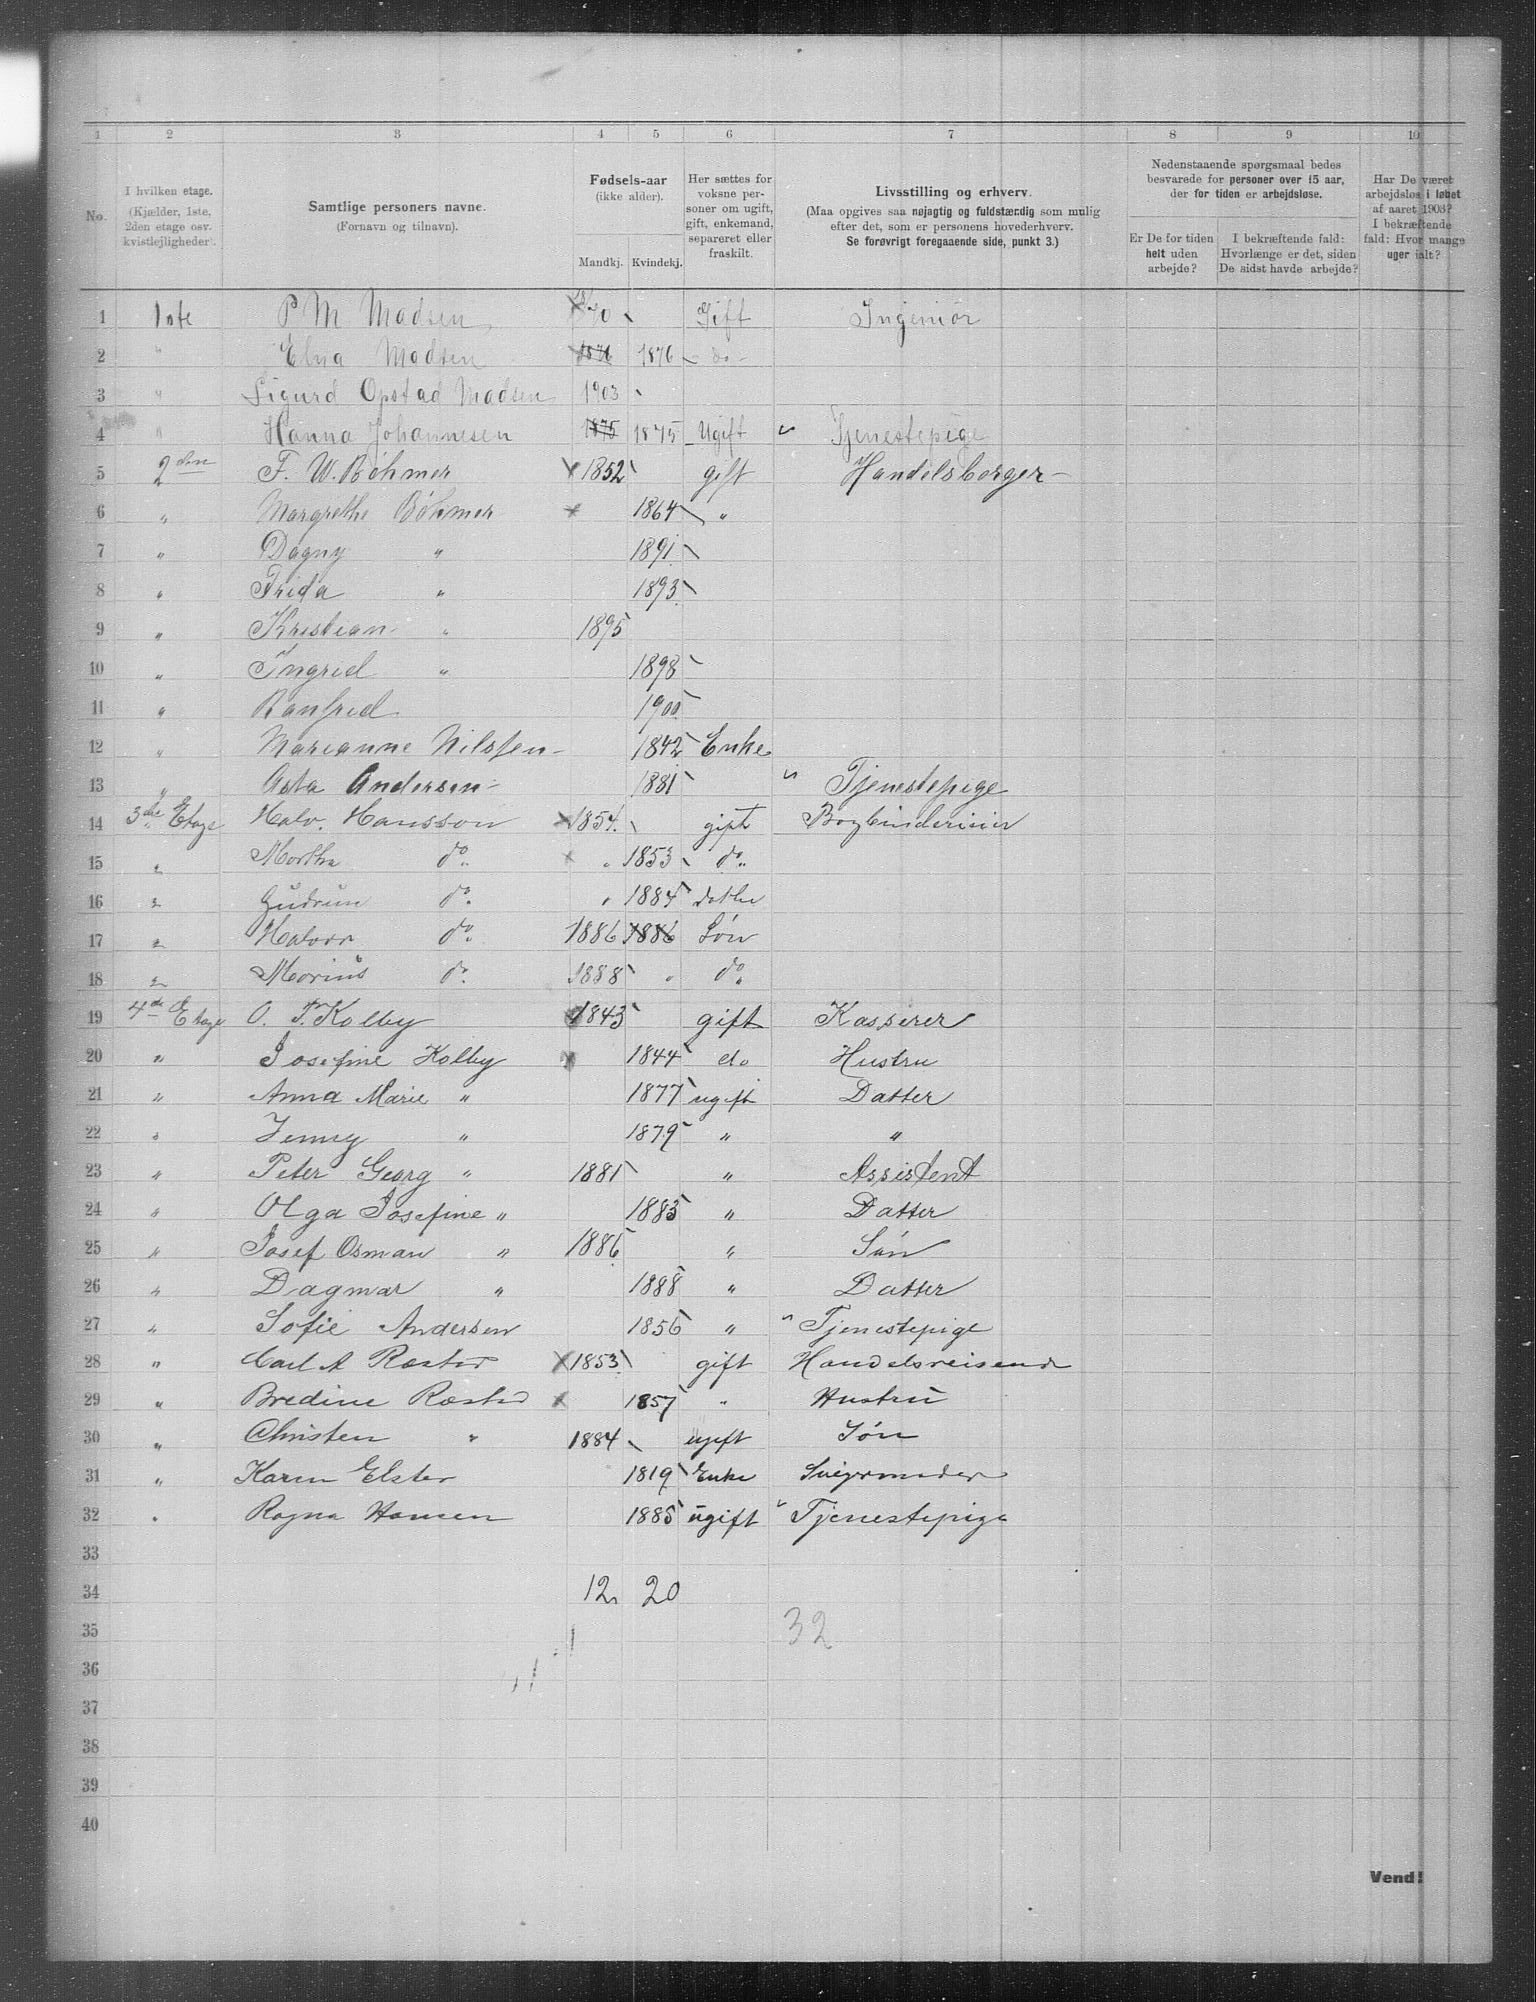 1 2 3 4 5 6 7 8 9 10
No.
I hvilken etage. (Kjælder, 1ste, 2den etage osv. kvistlejligheder).
Samtlige personers navne. (Fornavn og tilnavn).
Fødsels-aar (ikke alder).
Mandkj. Kvindekj.
Her sættes for voksne personer om ugift, gift, enkemand, separeret eller fraskilt.
Livsstilling og erhverv.
(Maa opgives saa nøjagtig og fuldstændig som mulig efter det, som er personens hovederhverv. Se forøvrigt foregaaende side, punkt 3.)
Nedenstaaende spørgsmaal bedes besvarede for personer over 15 aar, der for tiden er arbejdsløse.
Er De for tiden helt uden arbejde?
I bekræftende fald: Hvorlænge er det, siden De sidst havde arbejde?
Har De været arbejdsløs i løbet af aaret 1903? I bekræftende fald: Hvor mange uger ialt?
1 1ste P M Madsen 70 Gift Ingeniør
2 " Elna Madsen 1876 1876 do
3 " Sigurd Opstad Madsen 1903
4 " Hanna Johannesen 1875 1875 Ugift Tjenestepige
5 2den F. W. Bøhmer 1852 gift Handelsborger
6 " Margrethe Bøhmer 1864 "
7 " Dagny " 1891
8 " Frida " 1893
9 " Kristian " 1895
10 " Ingrid " 1898
11 " Ranfrid 1900
12 " Marianne Nilssen 1842 Enke
13 " Asta Andersen 1881 Tjenestepige
14 3die Etage Halv. Hansson 1854. gift
15 " Martha do. " 1853 do.
16 " Gudrun do. " 1884
17 " Halvor do. 1886 1886 Søn
18 " Marius do. 1888 " do.
19 4de Etage O. T. Kolby 1843 gift Kasserer
20 " Josefine Kolby 1844 do Hustru
21 " Anna Marie " 1877 ugift Datter
22 " Jenny " 1879 " "
23 " Peter Georg " 1881 " Assistent
24 " Olga Josefine " 1883 " Datter
25 " Josef Osman " 1886 " Søn
26 " Dagmar " 1888 " Datter
27 " Sofie Andersen 1856 " Tjenestepige
28 " Carl A 1853 gift Handelsreisende
29 " Bredine 1857 " Hustru
30 " Christen " 1884 ugift Søn
31 " Karen Elster 1819 Enke Svigermoder
32 " Ragna Hansen 1885 ugift Tjenestepige
33
34 12 20
35 32
36
37
38
39
40
Vend!